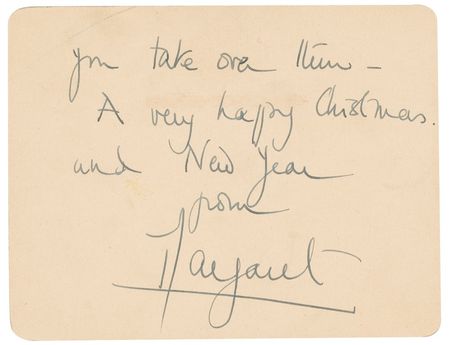 you take over them –
A very happy Christmas.
and New Year
from
Margaret